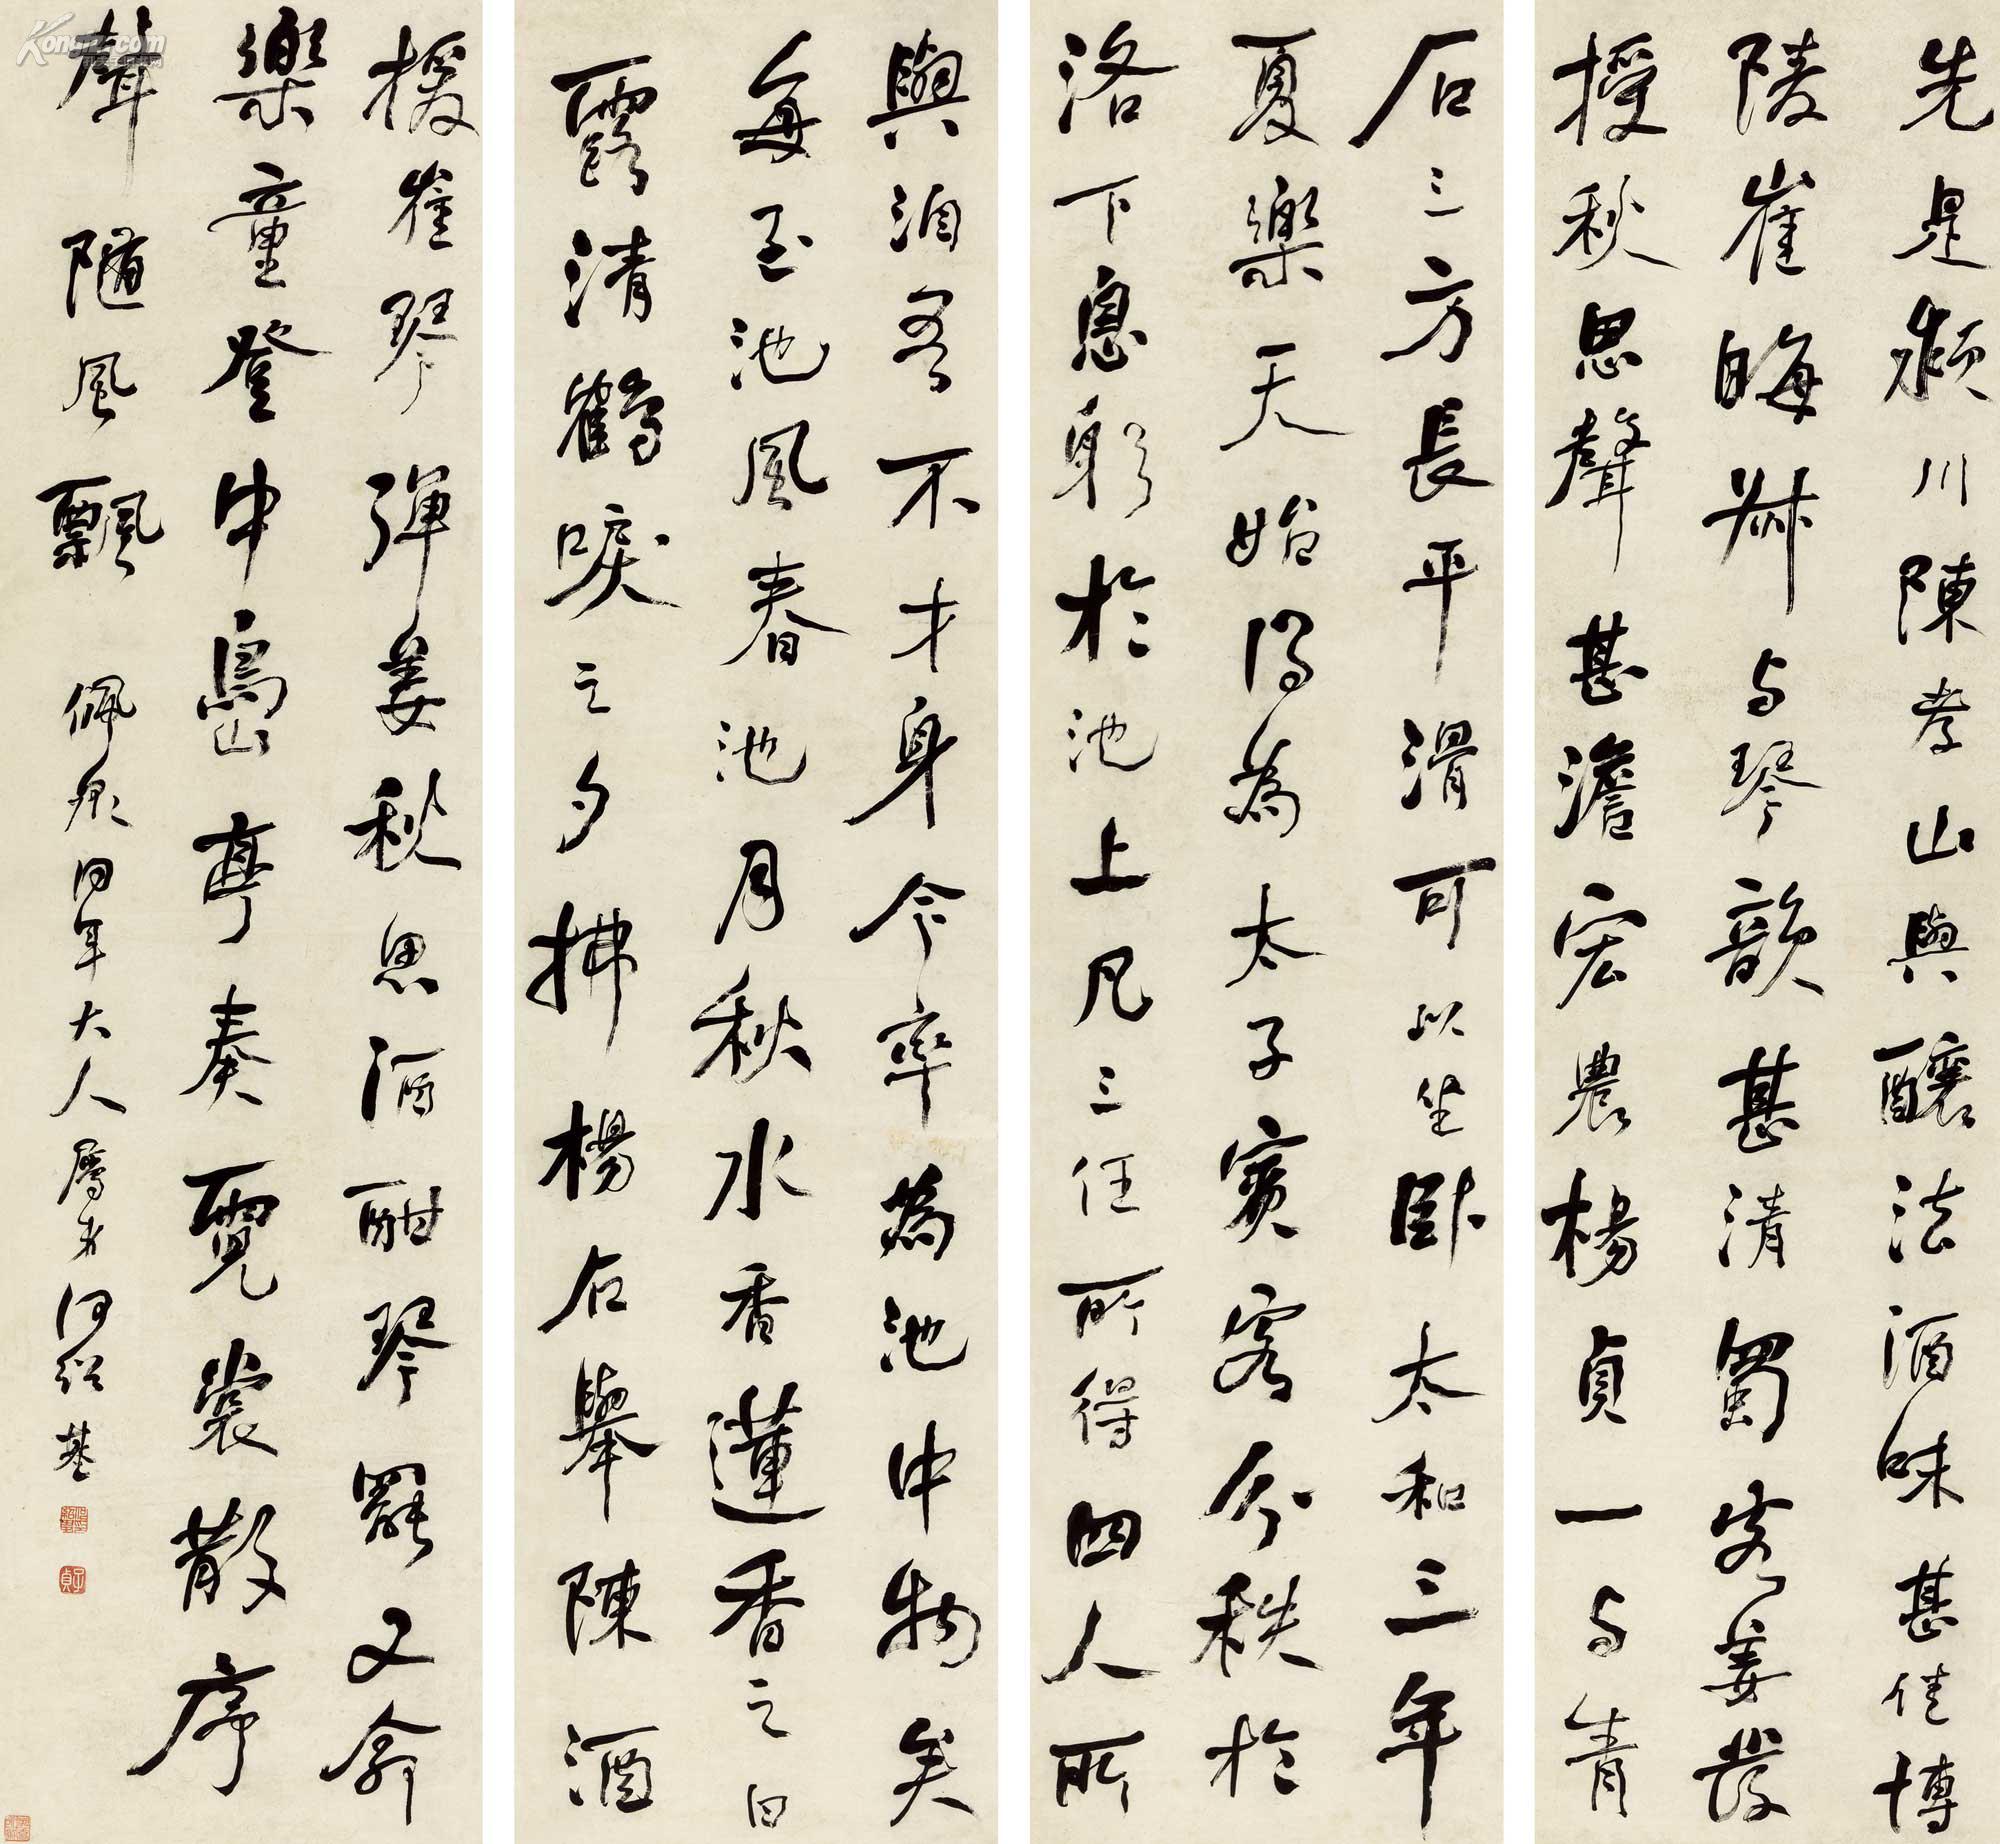 先是潁川陳孝山與釀法酒味甚佳博
陵崔晦叔与琴韻甚清蜀客姜發
授秋思聲甚澹宏農楊貞一与青
石三方長平滑可以坐卧太和三年
夏樂天始得為太子賓客分秩於
洛下息躬於池上凡三任所得四人所
與洎吾不才身今率為池中物矣
每至池風春池月秋水香蓮香之旦
露清鶴唳之夕拂楊石舉陳酒
援崔琴彈姜秋思酒酣琴罷又命
樂童登中島亭奏霓裳散序
聲隨風飄 佩 同年大人屬弟何紹基
子貞